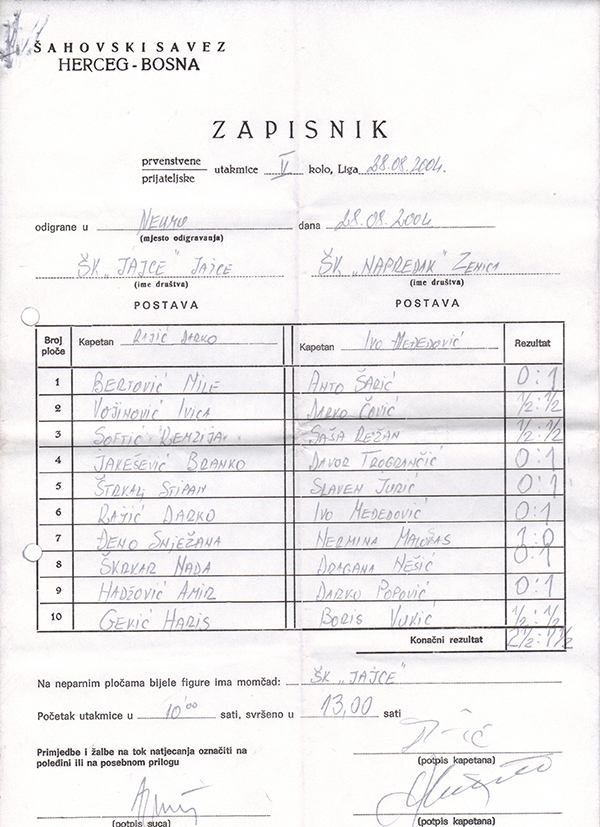 ŠAHOVSKI SAVEZ
HERCEG-BOSNA
ZAPISNIK
prvenstvene
prijateljske
utakmice V kolo, Liga 28.08.2004.
odigrane u Neumu dana 28.08.2004
(mjesto odigravanja)
ŠK „JAJCE" JAJCE ŠK „NAPREDAK" ZENICA
(ime društva) (ime društva)
POSTAVA POSTAVA
Broj ploče Kapetan RAJIĆ DARKO Kapetan IVO MEĐEDOVIĆ Rezultat
1 BERTOVIĆ MILE ANTO ŠARIĆ 0:1
2 VOJINOVIĆ IVICA DARKO ČOVIĆ 1/2:1/2
3 SOFTIĆ REMZIJA SAŠA REŽAN 1/2:1/2
4 JAKEŠEVIĆ BRANKO DAVOR TROGRANČIĆ 0:1
5 ŠTRKALJ STIPAN SLAVEN JURIĆ 0:1
6 RAJIĆ DARKO IVO MEĐEDOVIĆ 0:1
7 ĐENO SNJEŽANA NERMINA 1:0
8 ŠKRKAR NADA DRAGANA NEŠIĆ 0:1
9 HADŽOVIĆ AMIR DARKO POPOVIĆ 0:1
10 GEKIĆ HARIS BORIS VUKIĆ 1/2:1/2
Konačni rezultat 2 1/2:7 1/2
Na neparnim pločama bijele figure ima momčad: ŠK „JAJCE"
Početak utakmice u 10 00 sati, svršeno u 13,00 sati
Primjedbe i žalbe na tok natjecanja označiti na
poleđini ili na posebnom prilogu
(potpis kapetana)
(potpis suca) (potpis kapetana)